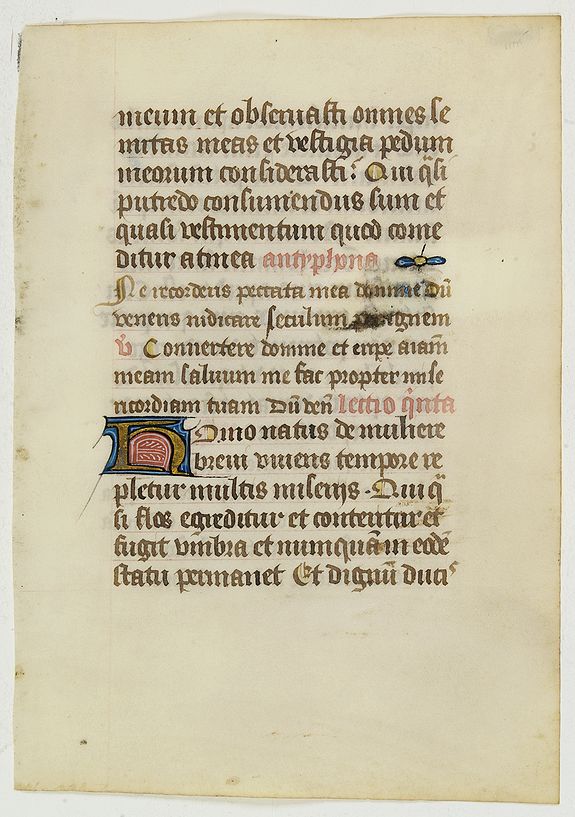 meum et obseruasti omnes se
mitas meas et vestigia pedum
meorum considerasti: Qui q̄si
putredo consumendus sum et
quasi vestimentum quod come
ditur a tinea antyphona
Ne recorderis peccata mea domine Dū
veneris iudicare seculum ignem
℣ Conuertere domine et eripe aīam
meam saluum me fac propter mise
ricordiam tuam Dū ven̄ lectio q̄nta
Homo natus de muliere
breui viuens tempore re
pletur multis miserijs. Qui q̄
si flos egreditur et conteritur et
fugit vmbra et numquam in eodē
statu permanet Et dignū duci